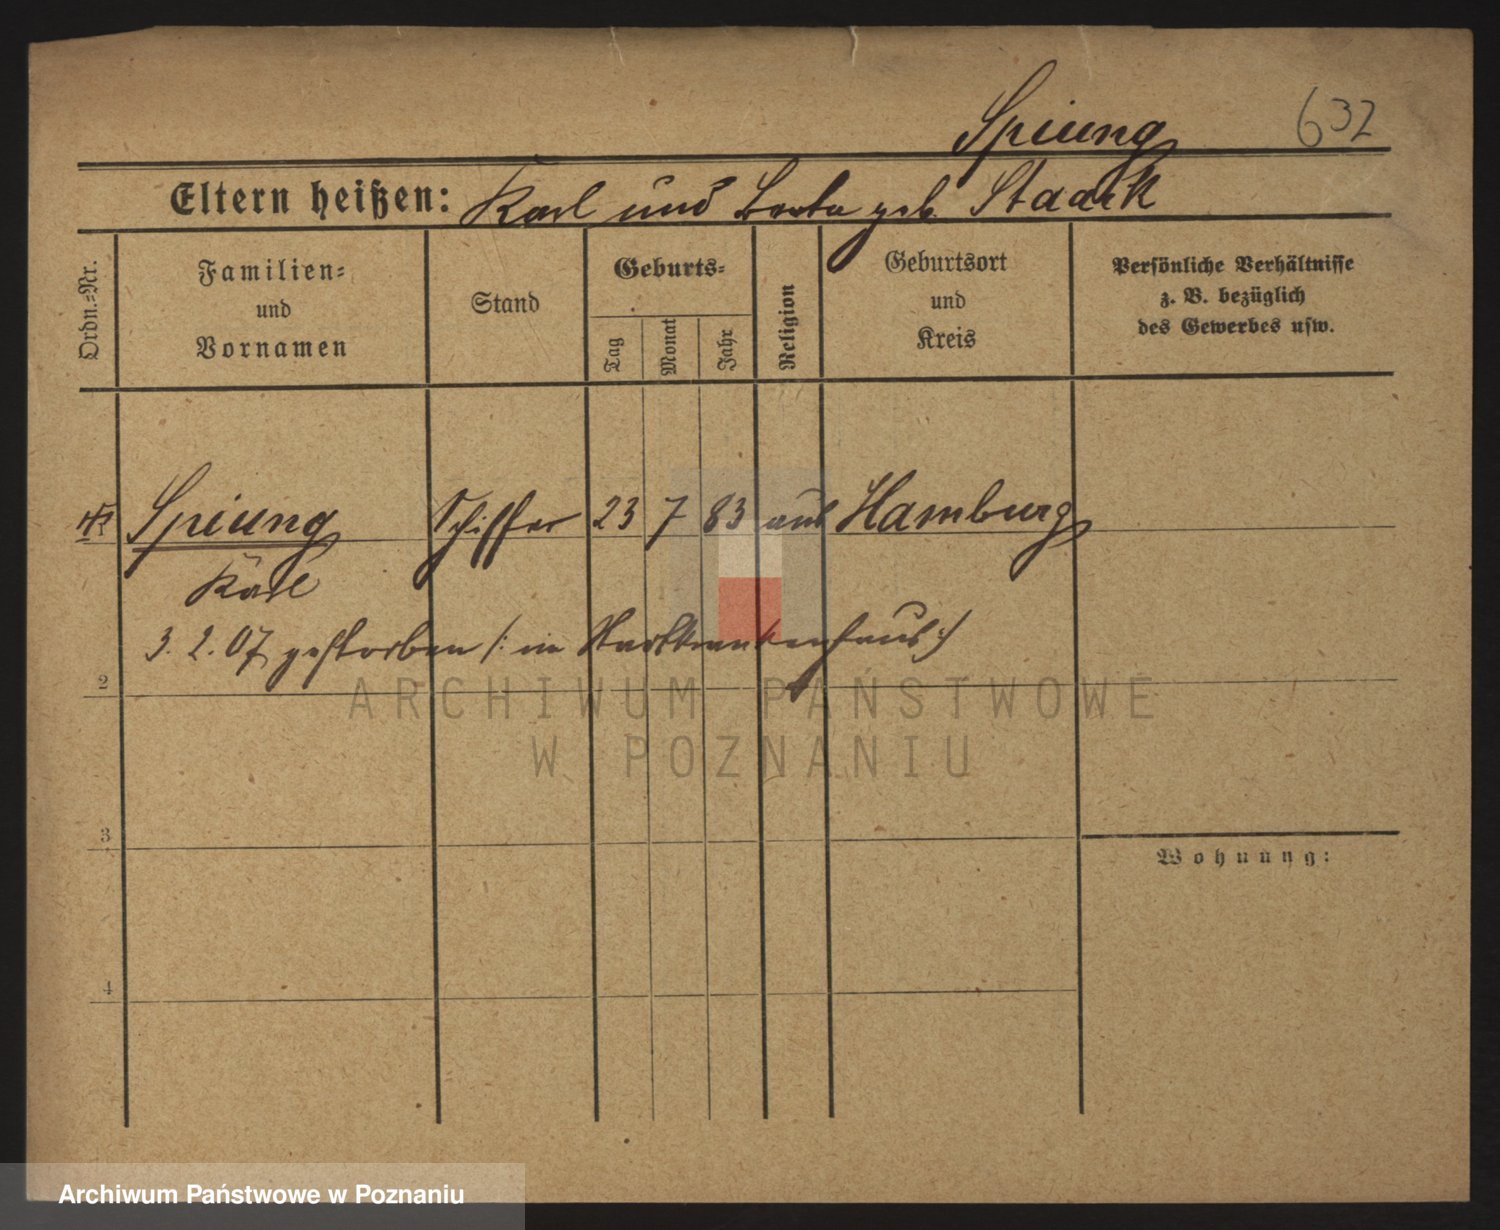 Spiung
632
Eltern heißen: Karl und Berta geb. Staack
Ordn.-Nr.
Familien-
und
Vornamen
Stand
Geburts-
Tag
Monat
Jahr
Religion
Geburtsort
und
Kreis
Persönliche Verhältnisse
z. B. bezüglich
des Gewerbes usw.
Spiung Schiffer 23 7 83 aus Hamburg
Karl
3. 2. 07 gestorben /: im Stadtkrankenhaus :/
2
ARCHIWUM PAŃSTWOWE
W POZNANIU
3
Wohnung:
4
Archiwum Państwowe w Poznaniu